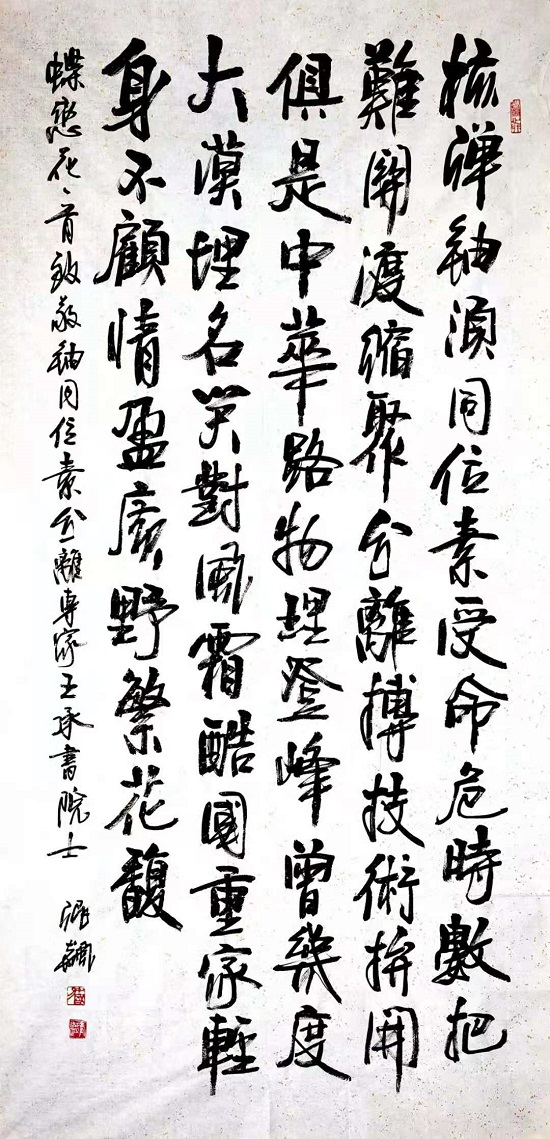 核彈鈾濃同位素受命危時數把
難關渡縮聚分離搏技術拚開
俱是中華路物理登峰曾幾度
大漠埋名笑對風霜酷國重家輕
身不顧情盈廣野繁花馥
蝶戀花、首致敬鈾同位素分離專家王承書院士